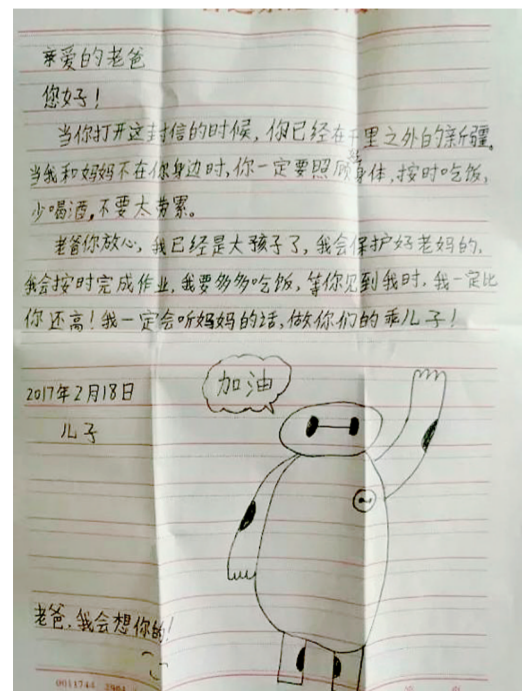 亲爱的老爸
您好！
当你打开这封信的时候，你已经在千里之外的新疆。
当我和妈妈不在你身边时，你一定要照顾身体，按时吃饭，
少喝酒，不要太劳累。
老爸你放心，我已经是大孩子了，我会保护好老妈的，
我会按时完成作业，我要多多吃饭，等你见到我时，我一定比
你还高！我一定会听妈妈的话，做你们的乖儿子！
加油
2017年2月18日
儿子
老爸，我会想你的！
0011744